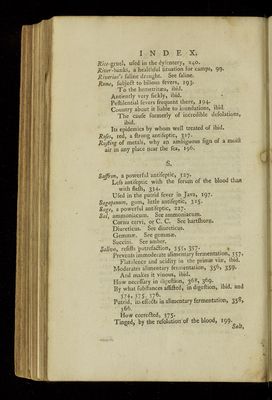 INDEX.
Rice-gruel, used in the dysentery, 240.
River-banks, a healthful situation for camps, 99.
Riverius's saline draught. See saline.
Rome, subject to bilious fevers, 193.
To the hemetritæa, ibid.
Antiently very sickly, ibid.
Pestilential fevers frequent there, 194.
Country about it liable to inundations, ibid.
The cause formerly of incredible desolations,
ibid.
Its epidemics by whom well treated of ibid.
Roses, red, a strong antiseptic, 327.
Rusting of metals, why an ambiguous sign of a moist
air in any place near the sea, 196.
S.
Saffron, a powerful antiseptic, 327.
Less antiseptic with the serum of the blood than
with flesh, 334.
Used in the putrid fever in Java, 197.
Sagapenum, gum, little antiseptic, 325.
Sage, a powerful antiseptic, 227.
Sal, ammoniacum. See ammoniacum.
Cornu cervi, or C. C. See hartshorn.
Diureticus. See diureticus.
Gemmæ. See gemmæ.
Succini. See amber.
Saliva, resists putrefaction, 351, 357.
Prevents immoderate alimentary fermentation, 357.
Flatulence and acidity in the primæ viæ, ibid.
Moderates alimentary fermentation, 356, 359.
And makes it vinous, ibid.
How necessary in digestion, 368, 369.
By what substances assisted, in digestion, ibid. and
374, 375, 376.
Putrid, its effects in alimentary fermentation, 358,
366.
How corrected, 375.
Tinged, by the resolution of the blood, 199.
Salt,